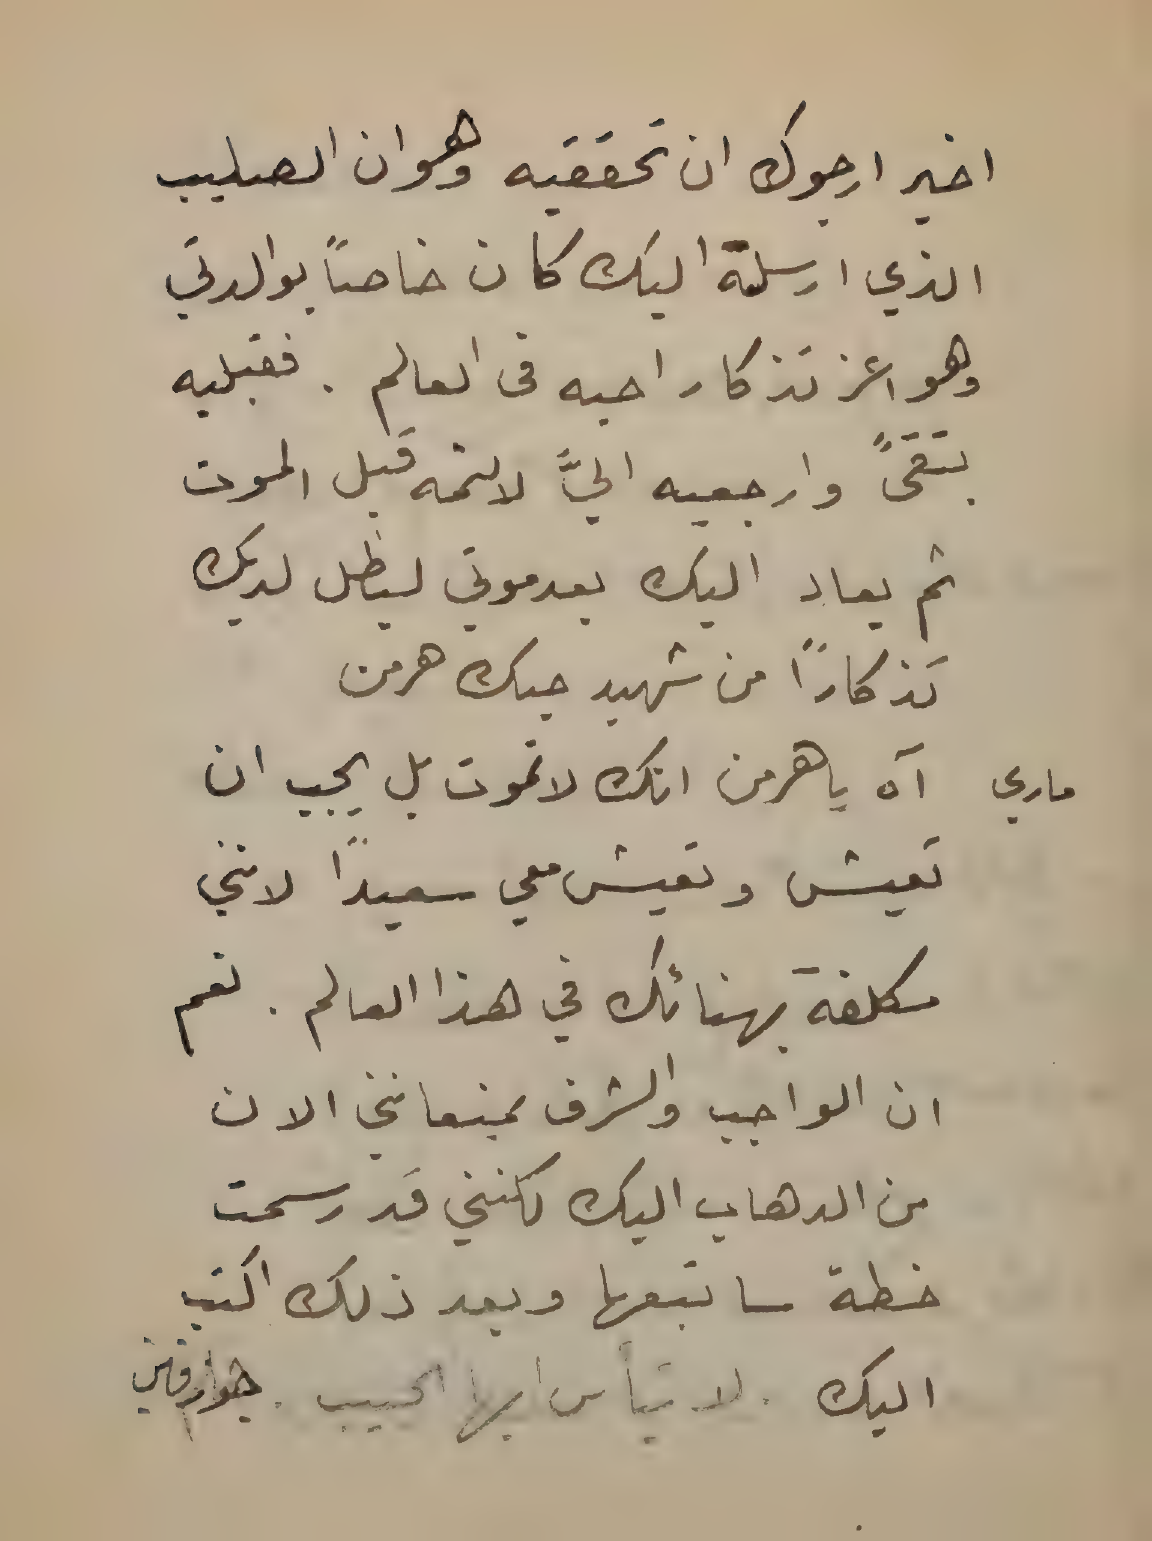 اخير ارجوك ان تحققيه وهو ان الصليب
الذي ارسلته اليك كان خاصاً بوالدتي
وهو اعز تذكار احبه فى العالم . فقبليه
بتقىً وارجعيه اليَّ لالثمه قبل الموت
ثم يعاد اليك بعد موتي ليظل لديك
تذكارًا من شهيد حبك هرمن
ماري آه يا هرمن انك لا تموت بل يجب ان
تعيش وتعيش معي سعيدًا لانني
مكلفة بهنائك في هذا العالم . نعم
ان الواجب والشرف يمنعانني الان
من الدهاب اليك لكنني قد رسمت
خطة ساتبعها وبعد ذلك اكتب
اليك . لا تيأس ايها الحبيب .